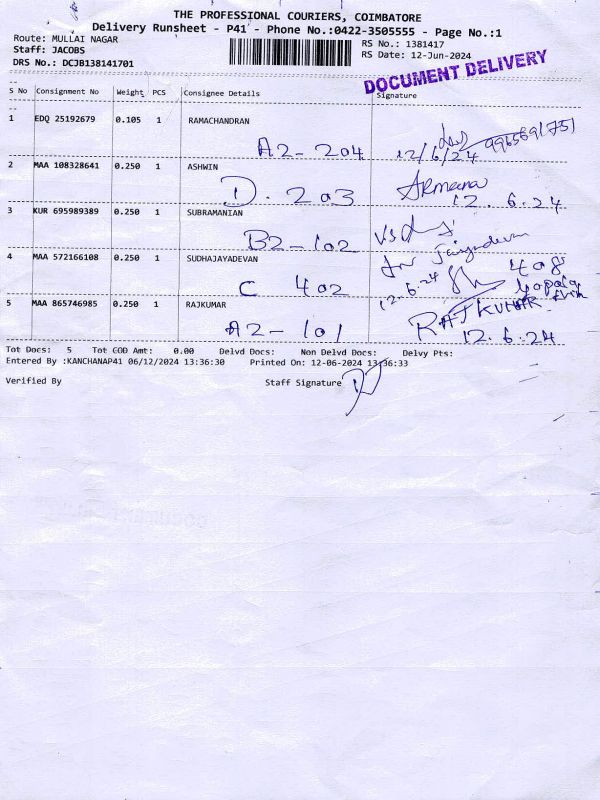 THE PROFESSIONAL COURIERS, COIMBATORE
Delivery Runsheet - P41 - Phone No.:0422-3505555 - Page No.:1
Route: MULLAI NAGAR
RS No.: 1381417
Staff: JACOBS
RS Date: 12-Jun-2024
DRS No.: DCJB138141701
DOCUMENT DELIVERY
S No Consignment No Weight PCS Consignee Details Signature
1 EDQ 25192679 0.105 1 RAMACHANDRAN
A2-204 12/6/24
2 MAA 108328641 0.250 1 ASHWIN
D. 203 12.6.24
3 KUR 695989389 0.250 1 SUBRAMANIAN
B2-102
4 MAA 572166108 0.250 1 SUDHAJAYADEVAN
C 402 12.6.24 408
5 MAA 865746985 0.250 1 RAJKUMAR RAJKUMAR
A2-101 12.6.24
Tot Docs: 5 Tot COD Amt: 0.00 Delvd Docs: Non Delvd Docs: Delvy Pts:
Entered By :KANCHANAP41 06/12/2024 13:36:30 Printed On: 12-06-2024 13:36:33
Verified By Staff Signature